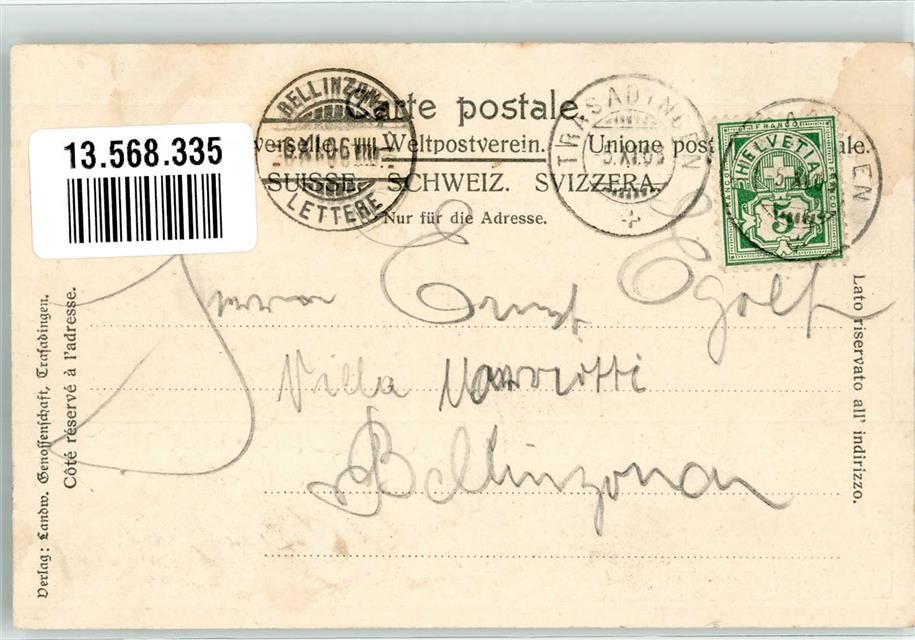 Carte postale.
13.568.335
verselle. Weltpostverein. Unione post ale.
SUISSE. SCHWEIZ. SVIZZERA.
Nur für die Adresse.
BELLINZONA
6.XI.06 VIII
LETTERE
TRASADINGEN
5.XI.06
FRANCO
HELVETIA
5
Herrn Ernst Egolf
Villa
Bellinzona
Verlag: Landw. Genossenschaft, Trasadingen.
Côté réservé à l'adresse.
Lato riservato all' indirizzo.